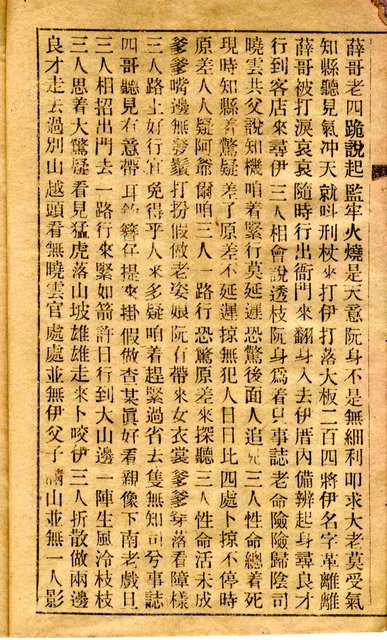 薛哥老四跪說起監牢火燒是天意阮身不是無細利叩求大老莫受氣
知縣聽見氣冲天就呌刑杖來打伊打落大板二百四將伊名字革離離
薛哥被打淚哀哀隨時行出衙門來翻身入去伊厝內備辨起身尋良才
行到客店來尋伊三人相會說透枝阮身為着只事誌老命險險歸陰司
曉雲共父說知機咱着緊行莫延遲恐驚後面人追三人性命總着死
現時知縣着驚疑差了原差不延遲掠無犯人日日比四處卜掠不停時
原差人人疑阿爺爾咱三人一路行恐驚原差來探聽三人性命活未成
爹爹嘴邊無發鬚打扮假做老姿娘阮有帶來女衣裳爹爹穿落看障樣
三人路上好行宜免得乎人來多疑咱着趕緊過省去隻無知司兮事誌
四哥聽見有意帶耳鈎簪仔提來掛假做查某真好看親像下南老戲旦
三人相招出門去一路行來緊如箭許日行到大山邊一陣生風冷枝枝
三人思着大驚疑看見猛虎落山坡雄雄走來卜咬伊三人折散做兩邊
良才走去過別山越頭看無曉雲官處處並無伊父子滿山並無一人影